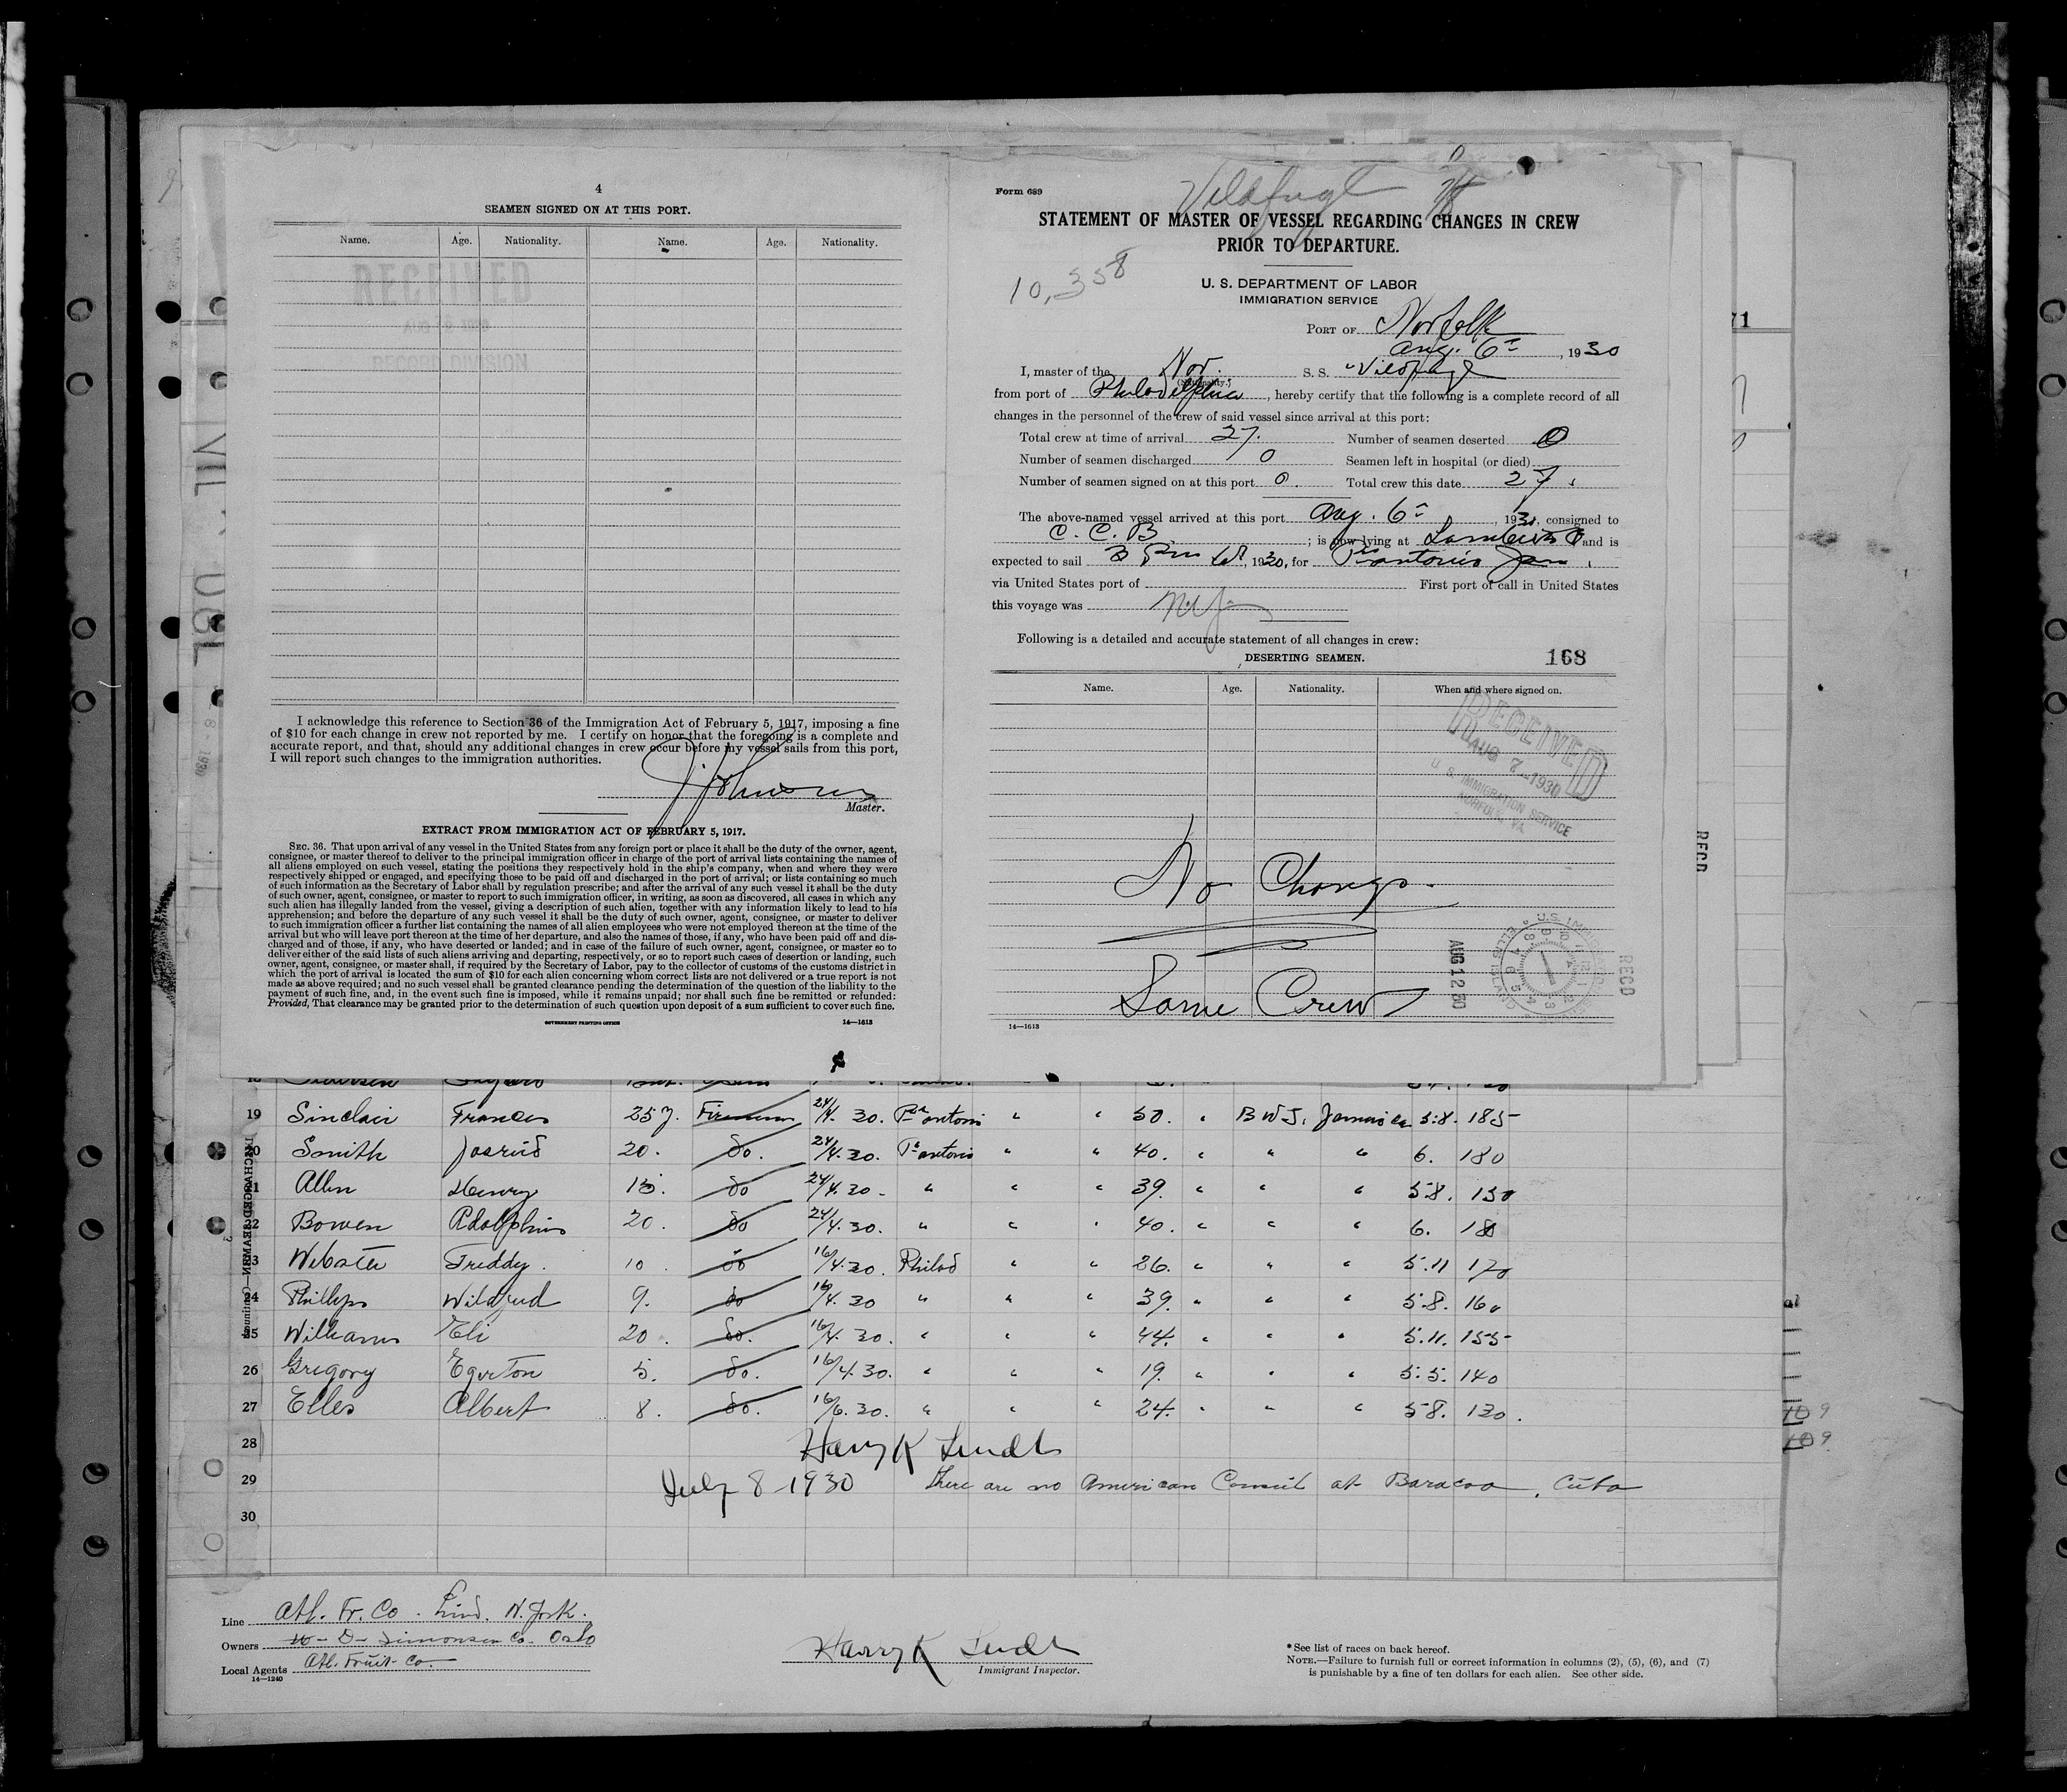 4
SEAMEN SIGNED ON AT THIS PORT.
Name. Age. Nationality. Name. Age. Nationality.
RECEIVED
RECORD DIVISION
I acknowledge this reference to Section 36 of the Immigration Act of February 5, 1917, imposing a fine
of $10 for each change in crew not reported by me. I certify on honor that the foregoing is a complete and
accurate report, and that, should any additional changes in crew occur before my vessel sails from this port,
I will report such changes to the immigration authorities.
Master.
EXTRACT FROM IMMIGRATION ACT OF FEBRUARY 5, 1917.
SEC. 36. That upon arrival of any vessel in the United States from any foreign port or place it shall be the duty of the owner, agent,
consignee, or master thereof to deliver to the principal immigration officer in charge of the port of arrival lists containing the names of
all aliens employed on such vessel, stating the positions they respectively hold in the ship's company, when and where they were
respectively shipped or engaged, and specifying those to be paid off and discharged in the port of arrival; or lists containing so much
of such information as the Secretary of Labor shall by regulation prescribe; and after the arrival of any such vessel it shall be the duty
of such owner, agent, consignee, or master to report to such immigration officer, in writing, as soon as discovered, all cases in which any
such alien has illegally landed from the vessel, giving a description of such alien, together with any information likely to lead to his
apprehension; and before the departure of any such vessel it shall be the duty of such owner, agent, consignee, or master to deliver
to such immigration officer a further list containing the names of all alien employees who were not employed thereon at the time of the
arrival but who will leave port thereon at the time of her departure, and also the names of those, if any, who have been paid off and dis-
charged and of those, if any, who have deserted or landed; and in case of the failure of such owner, agent, consignee, or master so to
deliver either of the said lists of such aliens arriving and departing, respectively, or so to report such cases of desertion or landing, such
owner, agent, consignee, or master shall, if required by the Secretary of Labor, pay to the collector of customs of the customs district in
which the port of arrival is located the sum of $10 for each alien concerning whom correct lists are not delivered or a true report is not
made as above required; and no such vessel shall be granted clearance pending the determination of the question of the liability to the
payment of such fine, and, in the event such fine is imposed, while it remains unpaid; nor shall such fine be remitted or refunded:
Provided, That clearance may be granted prior to the determination of such question upon deposit of a sum sufficient to cover such fine.
GOVERNMENT PRINTING OFFICE 14—1613
Form 689
Vildfugl
STATEMENT OF MASTER OF VESSEL REGARDING CHANGES IN CREW
PRIOR TO DEPARTURE.
10,358
U. S. DEPARTMENT OF LABOR
IMMIGRATION SERVICE
PORT OF Norfolk
Aug. 6, 1930
I, master of the Nor. S. S. "Vildfugl
from port of Philadelphia, hereby certify that the following is a complete record of all
changes in the personnel of the crew of said vessel since arrival at this port:
Total crew at time of arrival 27. Number of seamen deserted 0
Number of seamen discharged 0 Seamen left in hospital (or died)
Number of seamen signed on at this port 0. Total crew this date 27.
The above-named vessel arrived at this port Aug. 6, 1930, consigned to
C. C. B.; is now lying at and is
expected to sail, 1930, for Pt antonio Jam.
via United States port of First port of call in United States
this voyage was N.Y.
Following is a detailed and accurate statement of all changes in crew:
DESERTING SEAMEN. 168
Name. Age. Nationality. When and where signed on.
RECEIVED
AUG 7-1930
U. S. IMMIGRATION SERVICE
NORFOLK, VA.
No Change.
Same Crew
AUG 12 30
RECD
14—1613
RECD
19 Sinclair Frances 25 y. Fireman 24/4. 30. Pt antonio " " 50. " B W I. Jamaica 5.8. 185
20 Smith 20. do. 24/4.30. Pt antonio " " 40. " " " 6. 180
21 Allen Henry 15. do 24/4.30 " " " 39. " " " 5.8. 150
22 Bowen Adolphus 20. do 24/4.30. " " " 40. " " " 6. 180
23 Webster Freddy. 10 do 16/4.30. Philad " " 26. " " " 5.11 170
24 Phillips 9. do 16/4.30 " " " 39. " " " 5.8. 160
25 Williams Eli 20. do. 16/4.30. " " " 44. " " " 5.11. 155
26 Gregory Egerton 5. do. 16/4.30. " " " 19. " " " 5.5. 140
27 Elles Albert 8. do. 16/6.30. " " " 24. " " " 5 8. 130.
28 Harry K Lindt
29 July 8-1930 There are no American Consul at Baracoa, Cuba
30
Line Atl. Fr. Co. N. York.
Owners Simonsen Co. Oslo
Local Agents Atl. Fruit Co.
14—1240
Harry K Lindt
Immigrant Inspector.
*See list of races on back hereof.
NOTE.—Failure to furnish full or correct information in columns (2), (5), (6), and (7)
is punishable by a fine of ten dollars for each alien. See other side.